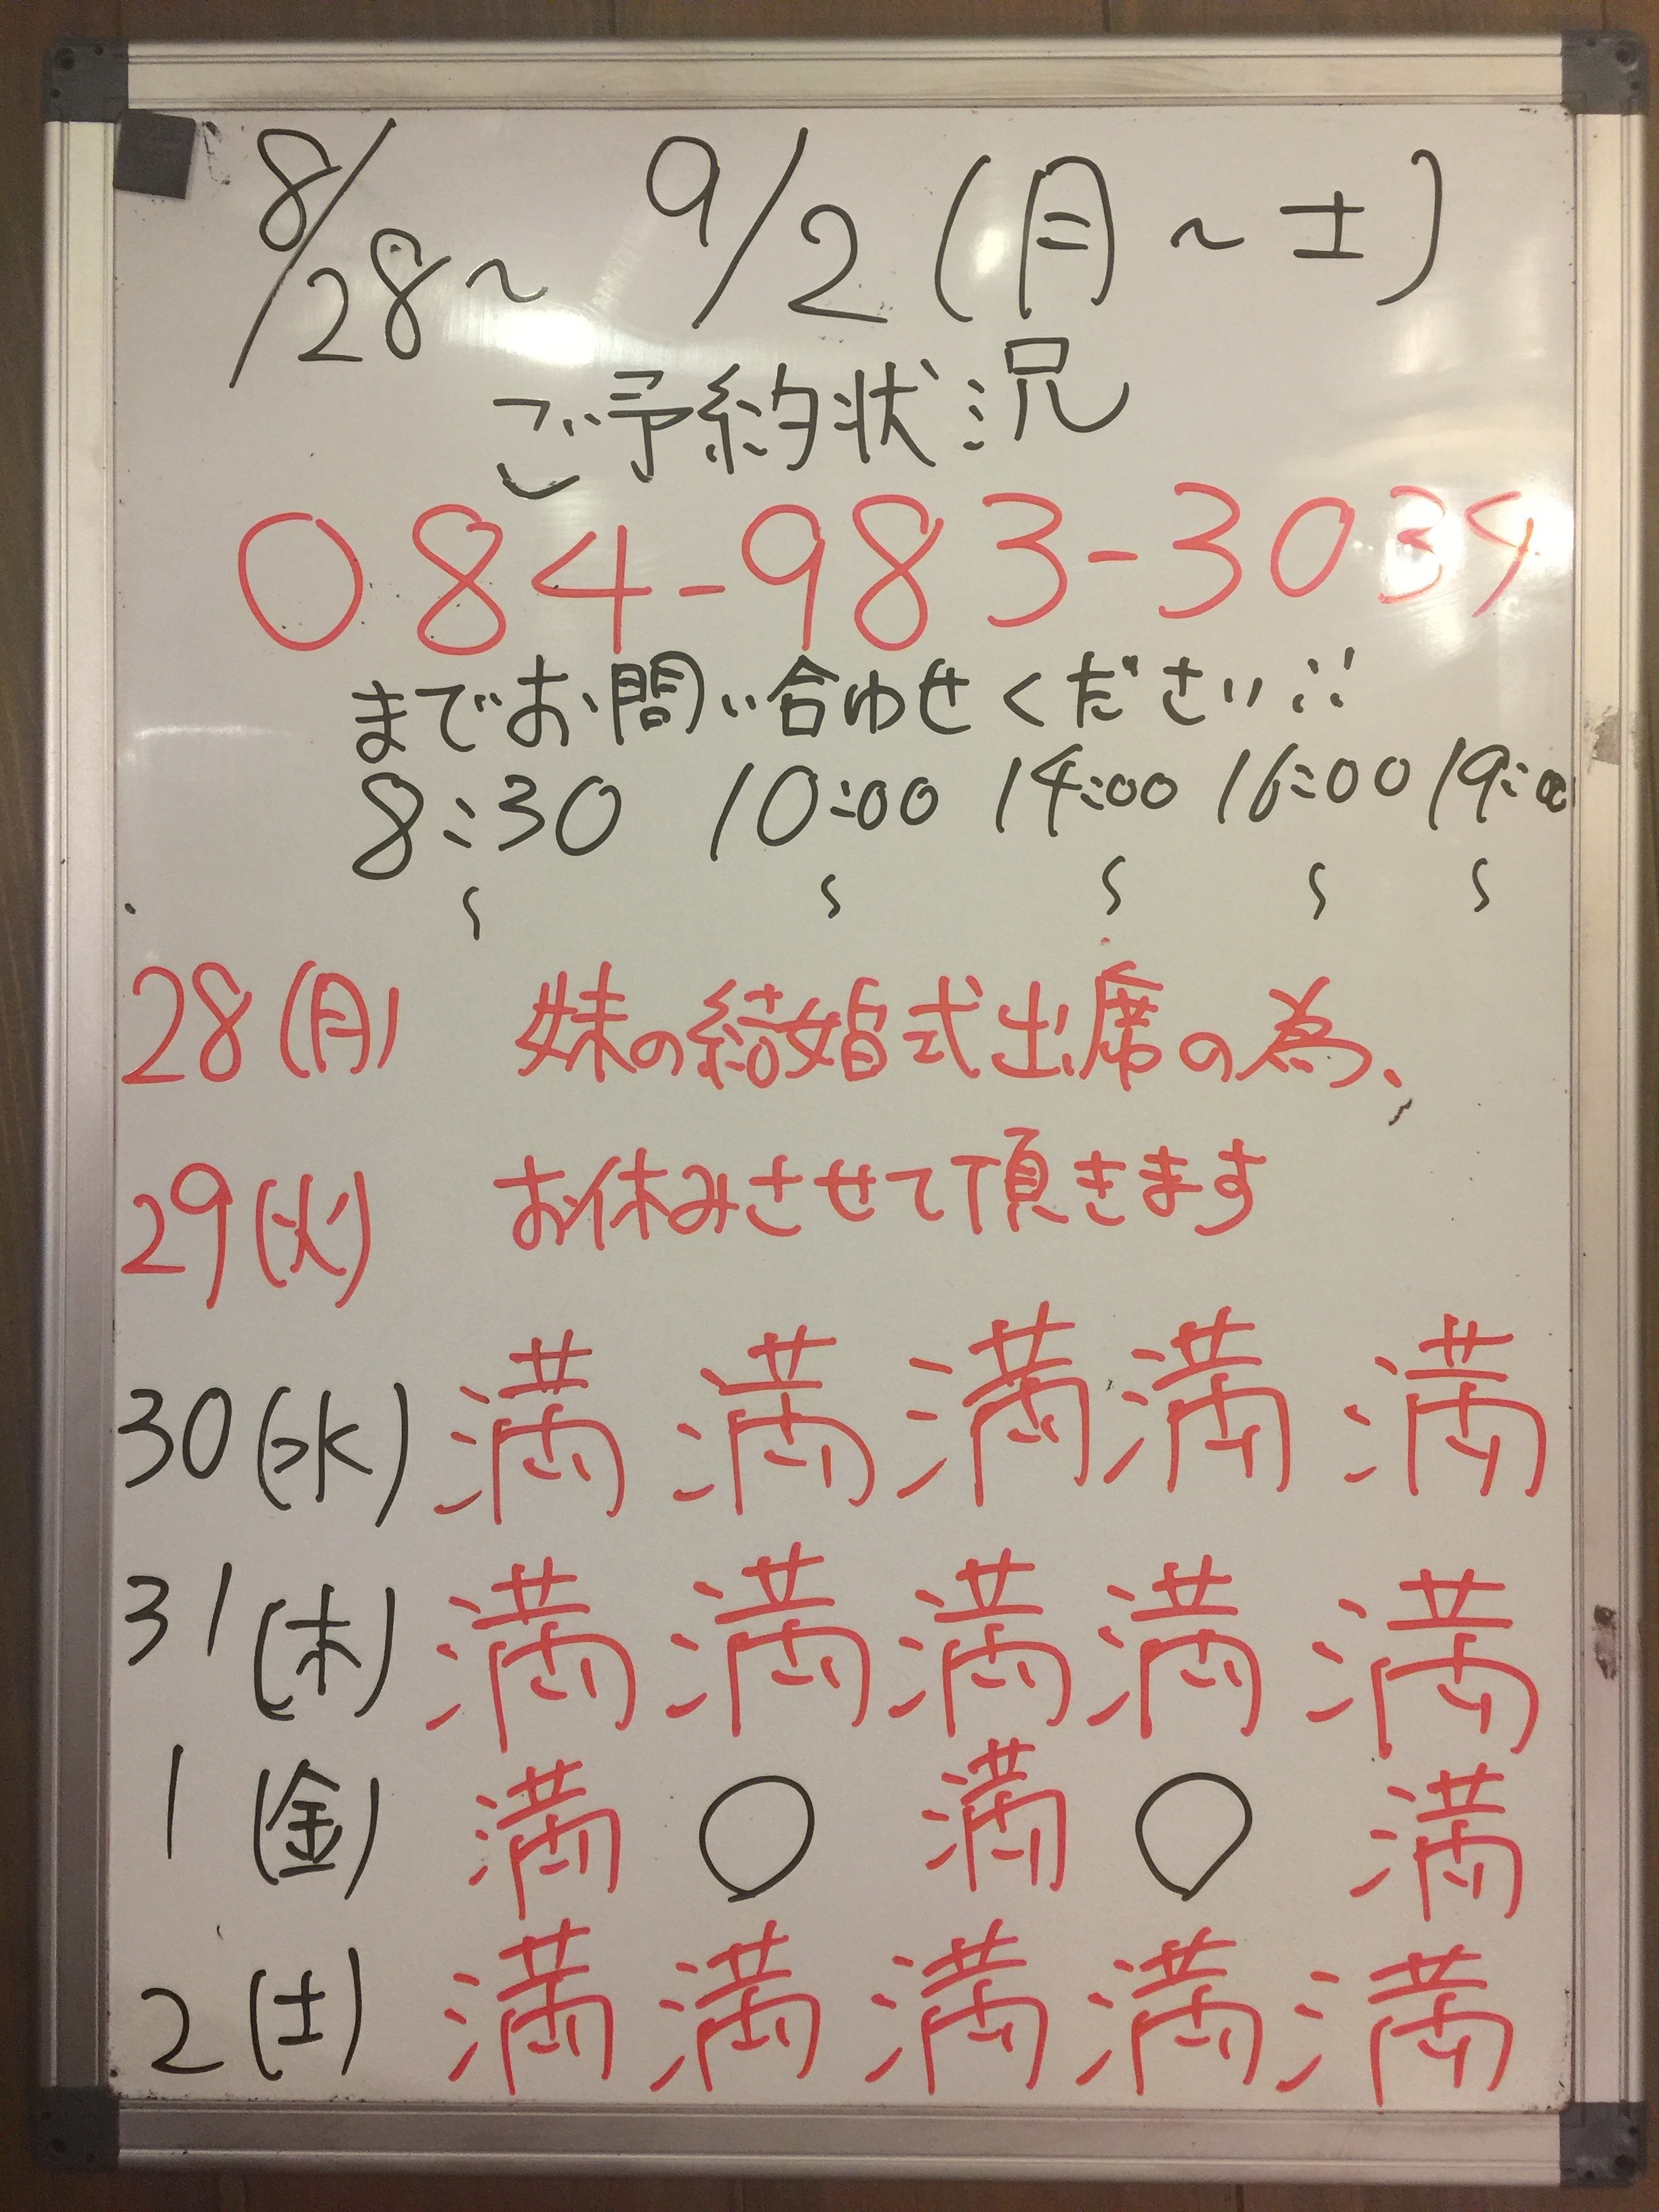 8/28〜 9/2 (月〜土)
ご予約状況
084-983-3039
までお問い合わせください!!
8:30 10:00 14:00 16:00 19:00
〜 〜 〜 〜 〜
28(月) 妹の結婚式出席の為、
29(火) お休みさせて頂きます
30(水) 満 満 満 満 満
31(木) 満 満 満 満 満
1(金) 満 ○ 満 ○ 満
2(土) 満 満 満 満 満